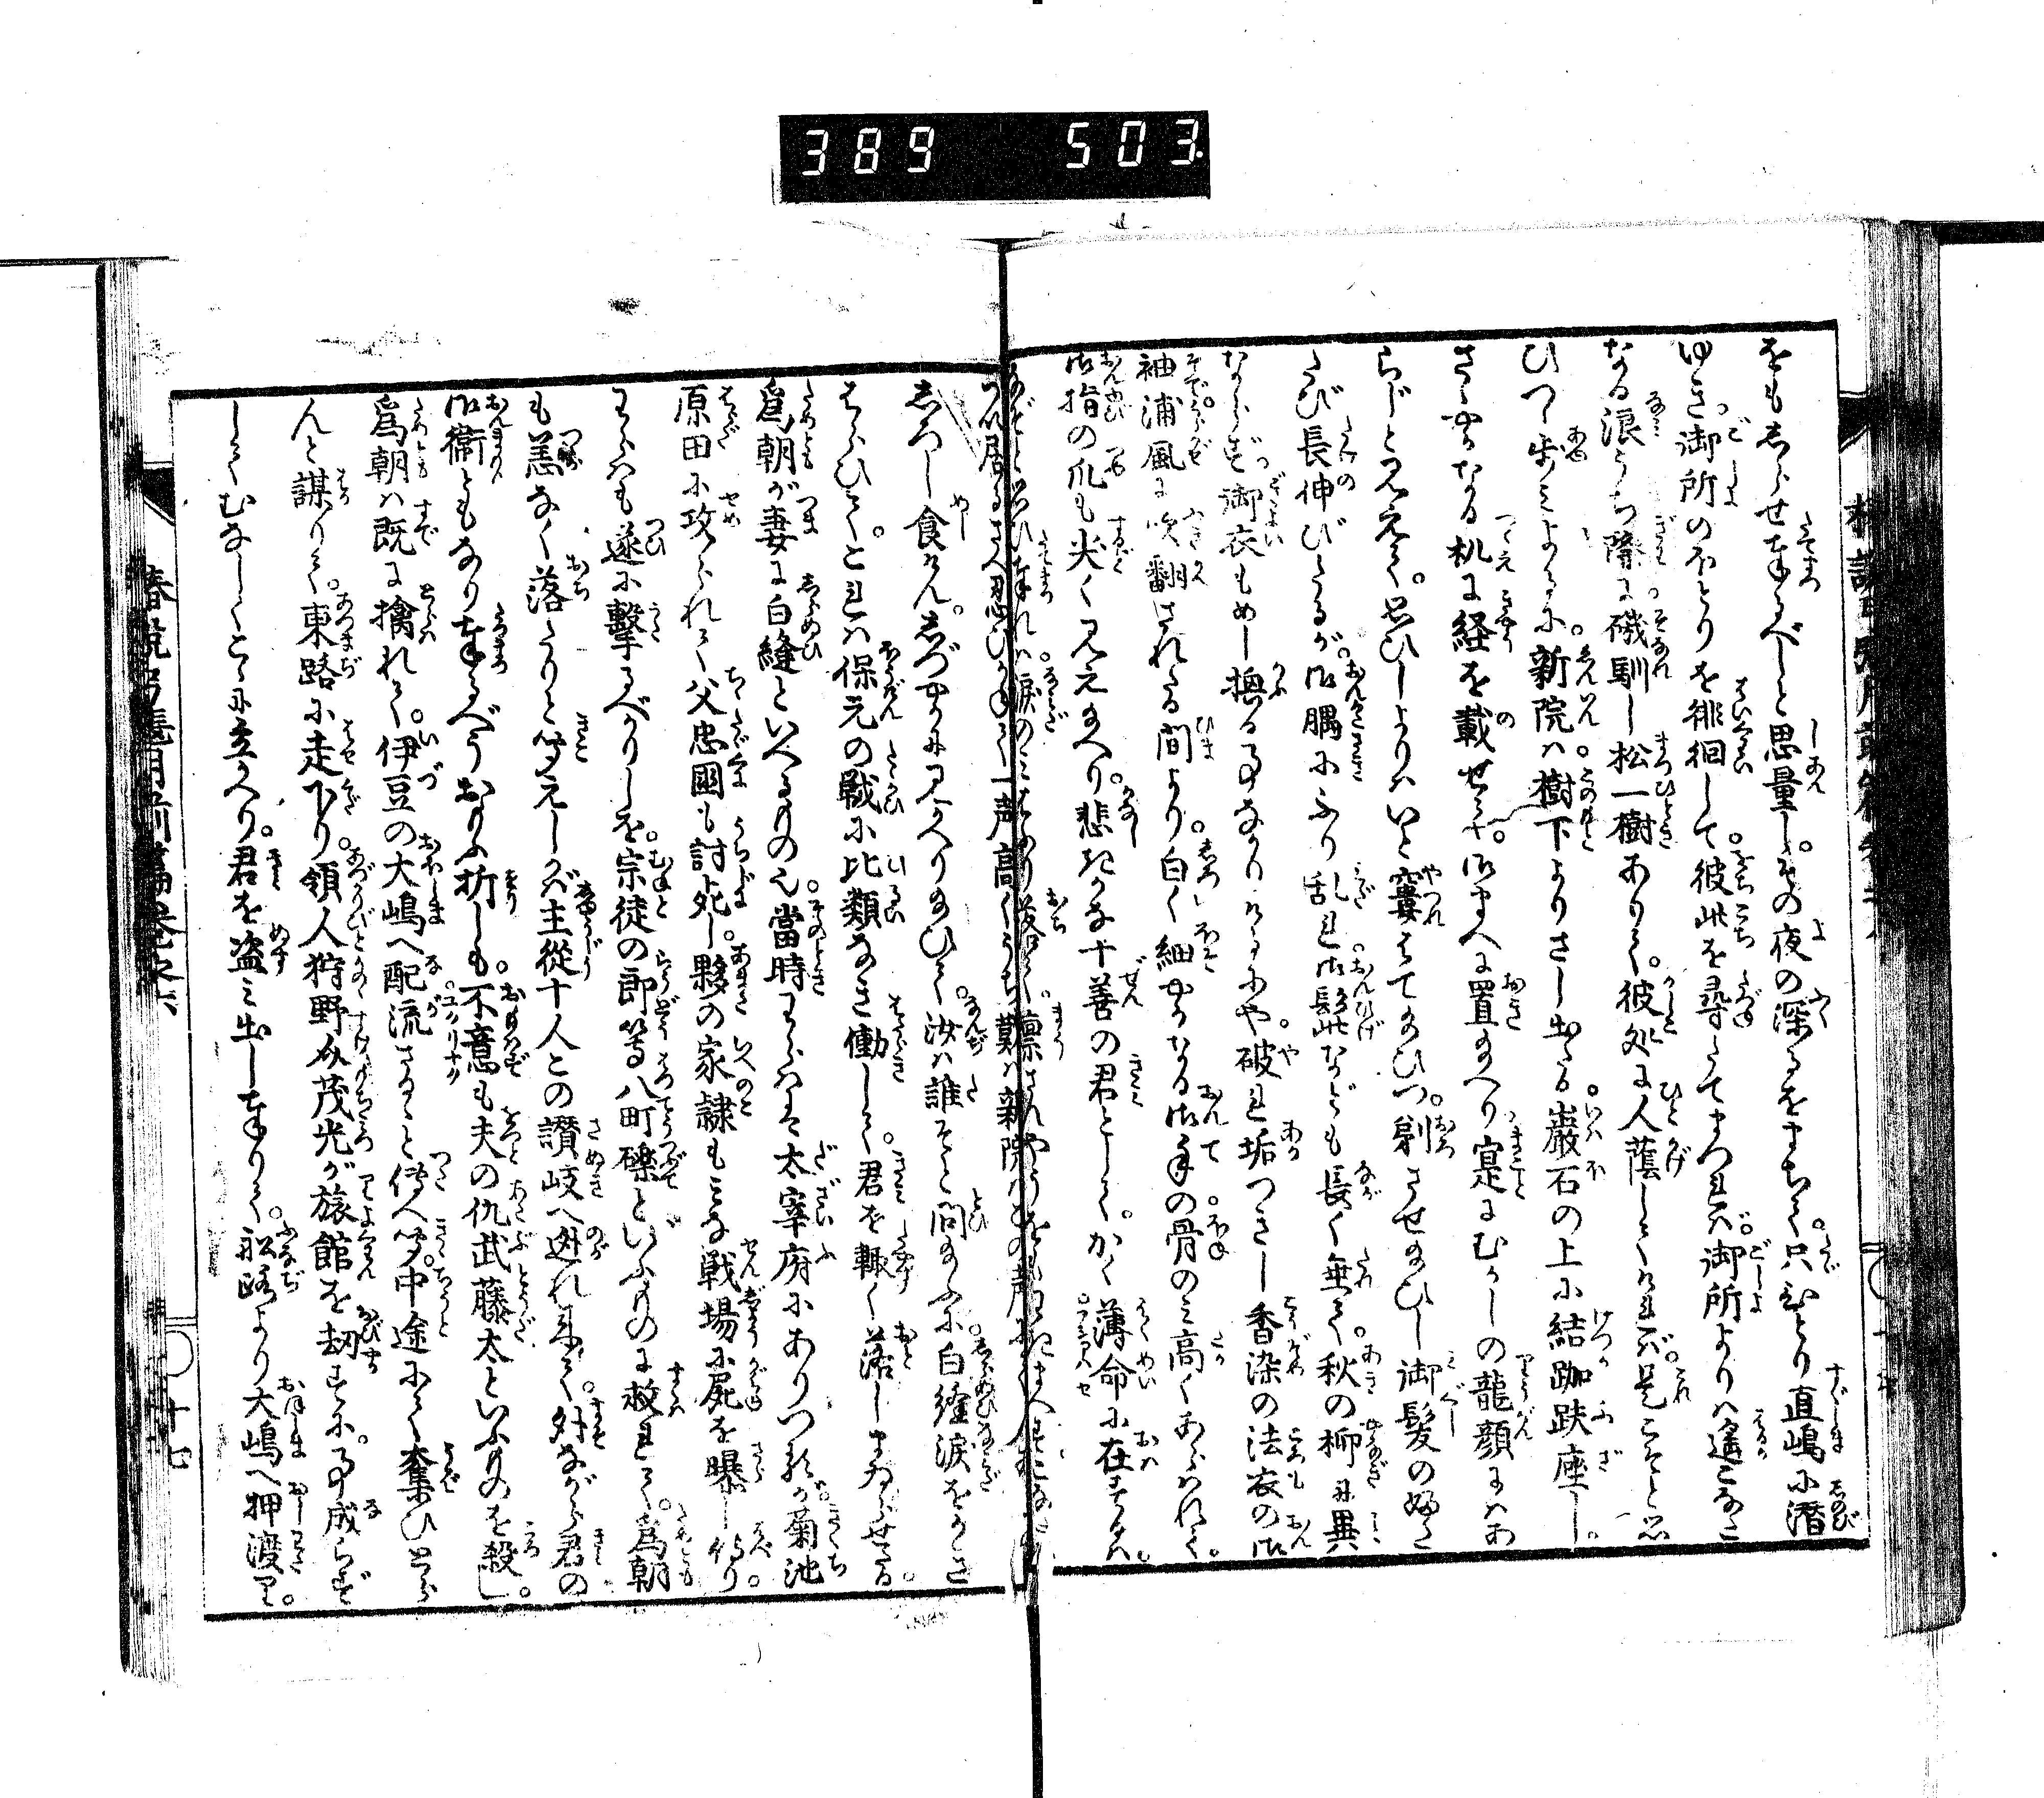 389 503
をもしらせ奉るべしと思量し。その夜の深るをまちて。只ひとり直嶋に潜
ゆき御所のほとりを徘徊して。彼此を尋たてまつれば。御所よりは遙こなた
なる浪うち際に。磯馴し松一樹ありて。彼処に人蔭してければ。是こそと思
ひつゝ歩みよるに。新院は。樹下よりさし出たる。巌石の上に結跏趺座し。
さゝやかなる机に経を載せて。御まへに置給へり。寔にむかしの龍顔にはあ
らじと見えて。思ひしよりはいと窶はて給ひつ。剃させ給ひし御髪の
たび長伸びたるが。御額にふり乱れ。御髭なども長く垂て。秋の柳に異
ならず。御衣もめし換る事なかりけるにや。破れ垢つきし香染の法衣の御
袖。浦風に吹翻されたる間より。白く細やかなる御手の骨のみ高くあらはれて。
御指の爪も尖く見え給へり。悲きかな十善の君として。かく薄命に在すとは。
つれ居るさへ忍びかねて一声高くうち歎ば新院はこの声に
しろし食けん。しづかに見かへり給ひて。汝は誰そと問給ふに。白縫涙をかき
はらひて。これは保元の戦に比類なき働して。君を輙く落しまゐらせたる。
為朝が妻に白縫といへるもの也。當時わらはは太宰府にありつるが。菊池
原田に攻られて父忠國も討死し。夥の家隷もみな戦場に屍を曝し侍り。
わらはも遂に撃るべかりしを。宗徒の郎等八町礫といふものに救れて。為朝
も恙なく落たりと聞えしかば主從十人この讃岐へ迯れ来て。外ながら君の
御衛ともなり奉るべうおもふ折しも。不意も夫の仇武藤太といふものを殺し。
為朝は既に擒れて。伊豆の大嶋へ配流さるゝと傳へ聞。中途にて奪ひとら
んと謀りて。東路に走下り。領人狩野介茂光が旅館を劫すに。事成らず
してむなしくこゝに立かへり。君を盗み出し奉りて。船路より大嶋へ押渡り。
椿説弓張月前篇巻之六
十七